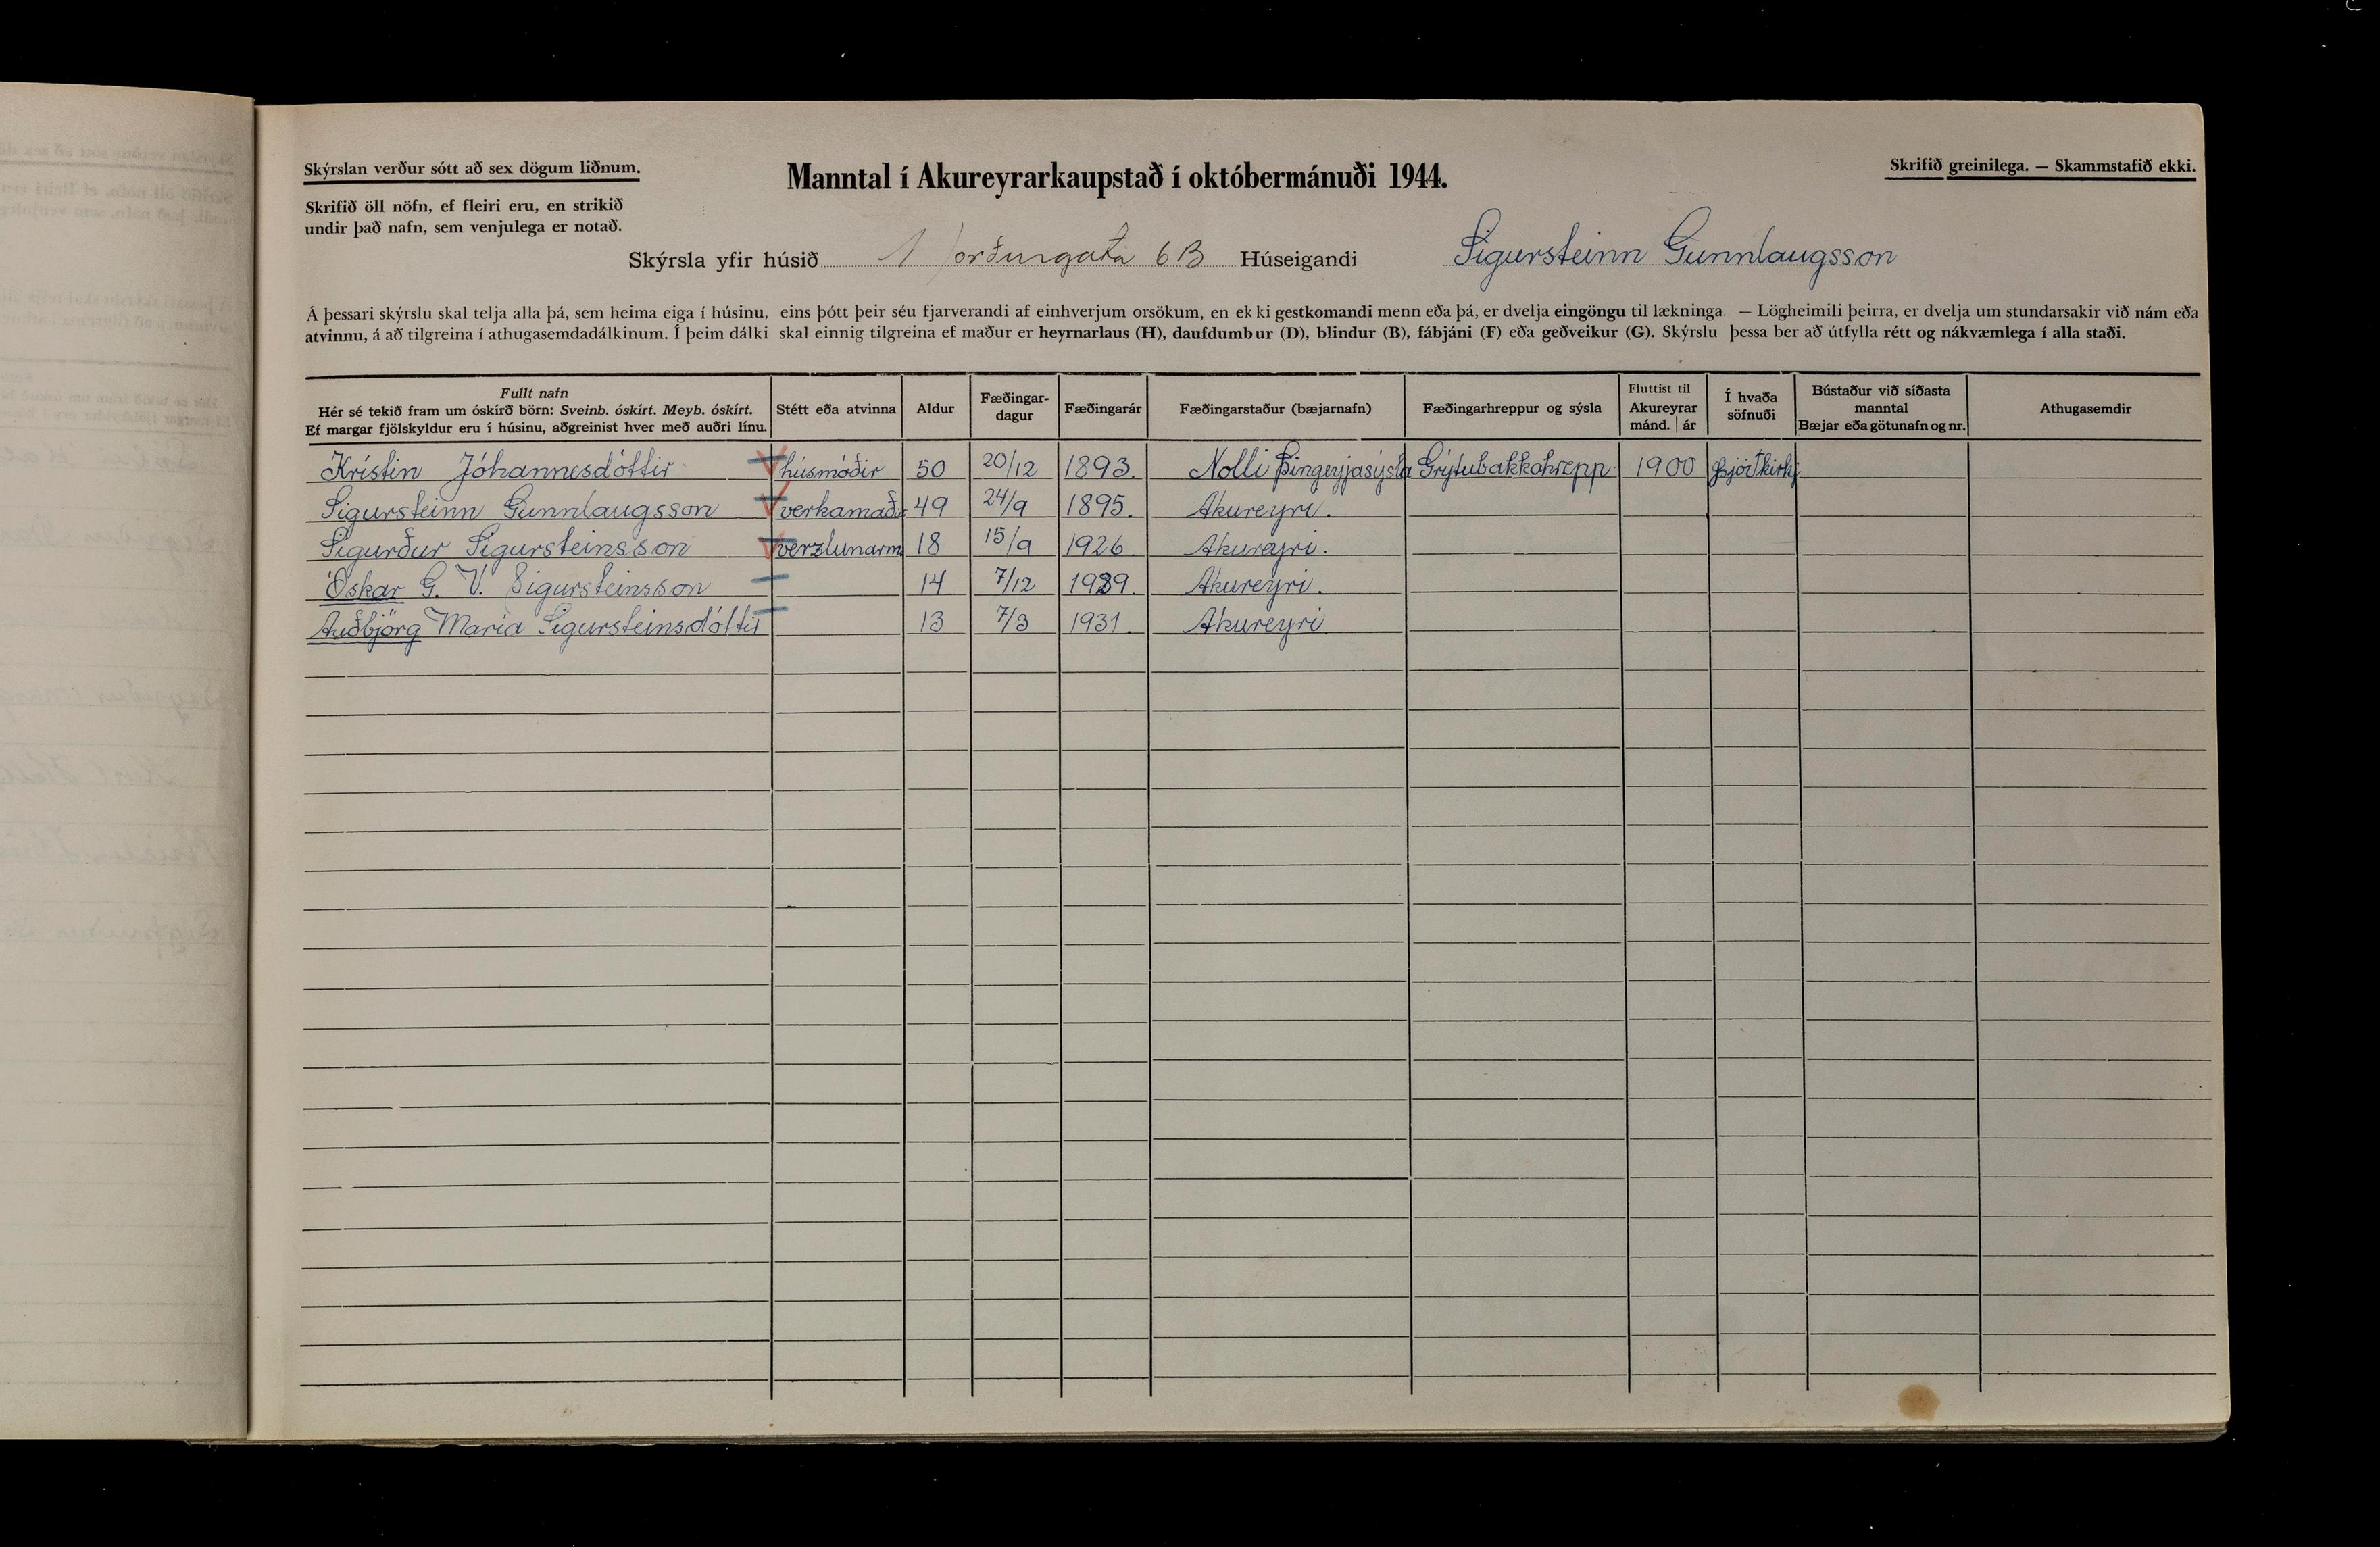 Skýrslan verður sótt að sex dögum liðnum.
Manntal í Akureyrarkaupstað í októbermánuði 1944.
Skrifið greinilega. — Skammstafið ekki.
Skrifið öll nöfn, ef fleiri eru, en strikið
undir það nafn, sem venjulega er notað.
Skýrsla yfir húsið Norðurgata 6B Húseigandi Sigursteinn Gunnlaugsson
Á þessari skýrslu skal telja alla þá, sem heima eiga í húsinu, eins þótt þeir séu fjarverandi af einhverjum orsökum, en ekki gestkomandi menn eða þá, er dvelja eingöngu til lækninga. — Lögheimili þeirra, er dvelja um stundarsakir við nám eða
atvinnu, á að tilgreina í athugasemdadálkinum. Í þeim dálki skal einnig tilgreina ef maður er heyrnarlaus (H), daufdumbur (D), blindur (B), fábjáni (F) eða geðveikur (G). Skýrslu þessa ber að útfylla rétt og nákvæmlega í alla staði.
Fullt nafn
Hér sé tekið fram um óskírð börn: Sveinb. óskírt. Meyb. óskírt.
Ef margar fjölskyldur eru í húsinu, aðgreinist hver með auðri línu.
Stétt eða atvinna
Aldur
Fæðingar-
dagur
Fæðingarár
Fæðingarstaður (bæjarnafn)
Fæðingarhreppur og sýsla
Fluttist til
Akureyrar
mánd. | ár
Í hvaða
söfnuði
Bústaður við síðasta
manntal
Bæjar eða götunafn og nr.
Athugasemdir
Kristin Jóhannesdóttir húsmóðir 50 20/12 1893. Nolli Þingeyjasýsla Grýtubakkahrepp 1900 Þjóðkirkj
Sigursteinn Gunnlaugsson verkamaður 49 24/9 1895. Akureyri.
Sigurður Sigursteinsson verzlunarm 18 15/9 1926. Akureyri.
Óskar G. V. Sigursteinsson 14 7/12 1929. Akureyri.
Auðbjörg Maria Sigursteinsdóttir 13 7/3 1931. Akureyri